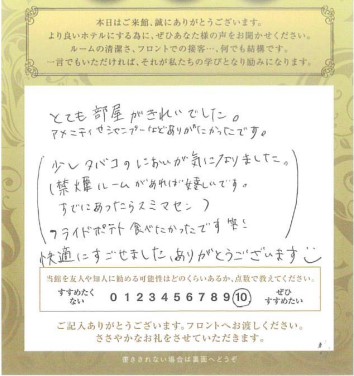 本日はご来館、誠にありがとうございます。
より良いホテルにする為に、ぜひあなた様の声をお聞かせください。
ルームの清潔さ、フロントでの接客…、何でも結構です。
一言でもいただければ、それが私たちの学びとなり励みになります。
とても部屋がきれいでした。
アメニティやシャンプーなどありがたかったです。
(少しタバコのにおいが気になりました。
(禁煙ルームがあれば嬉しいです。
すでにあったらスミマセン)
フライドポテト食べたかったです笑)
快適にすごせました、ありがとうございます
当館を友人や知人に勧める可能性はどのくらいあるか、点数で教えてください。
すすめたくない 0 1 2 3 4 5 6 7 8 9 10 ぜひすすめたい
ご記入ありがとうございます。フロントへお渡しください。
ささやかなお礼をさせていただきます。
書ききれない場合は裏面へどうぞ